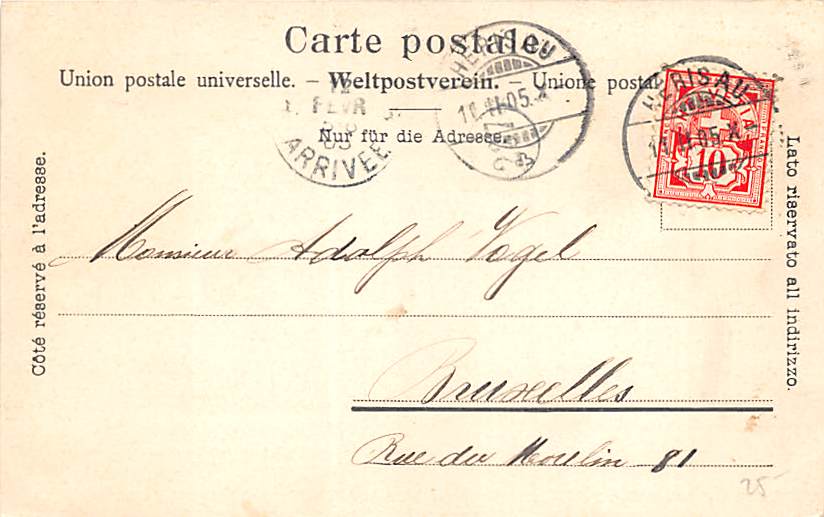 Carte postale.
Union postale universelle. – Weltpostverein. – Unione postal
Nur für die Adresse.
Côté réservé à l'adresse.
Lato riservato all indirizzo.
HERISAU
11.II.05.X
HERISAU
11.II.05.X
12
FEVR
05
ARRIVEE
10
Monsieur Adolph Vogel
Bruxelles
Rue du Moulin 81
25